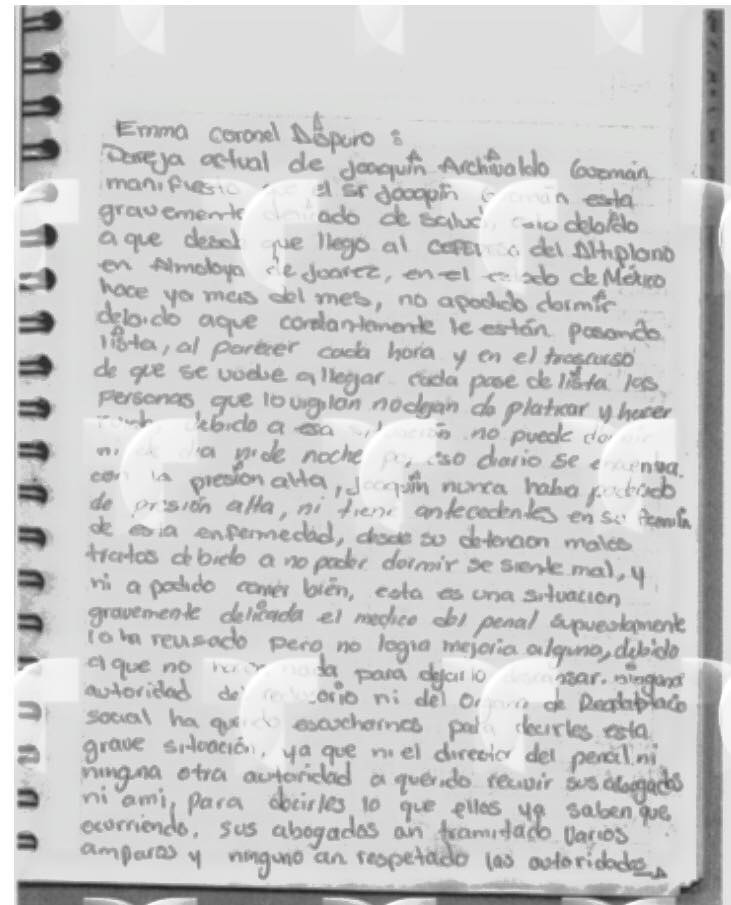 Emma coronel Aispuro :
Pareja actual de Joaquín Archivaldo Guzmán
manifiesto que el sr Joaqpín Guzmán esta
gravemente delicado de salud, esto debido
a que desde que llegó al cefereso del Altiplano
en Almoloya de Juarez, en el estado de México
hace ya mas del mes, no apodido dormir
debido aque constantemente le están pasando
lista, al parecer cada hora y en el trascurso
de que se vuelve a llegar cada pase de lista las
personas que lo vigilan nodejan de platicar y hacer
ruido debido a esa situación no puede dormir
ni de dia ni de noche por eso diario se encuentra
con la presión alta, Joaquín nunca habia padecido
de presión alta, ni tiene antecedentes en su familia
de esta enfermedad, desde su detencion malos
tratos debido a no poder dormir se siente mal, y
ni a podido comer bién, esta es una situacion
gravemente delicada el medico del penal supuestamente
lo ha reusado pero no logra mejoria alguna, debido
a que no hacen nada para dejarlo descansar. ninguna
autoridad del reclusorio ni del Organo de
social ha querido escucharnos para decirles esta
grave situación, ya que ni el director del penal ni
ninguna otra autoridad a querido recivir sus abogados
ni ami, para decirles lo que ellos ya saben que
ocurriendo. sus abogados an tramitado varios
amparos y ninguno an respetado las autoridades